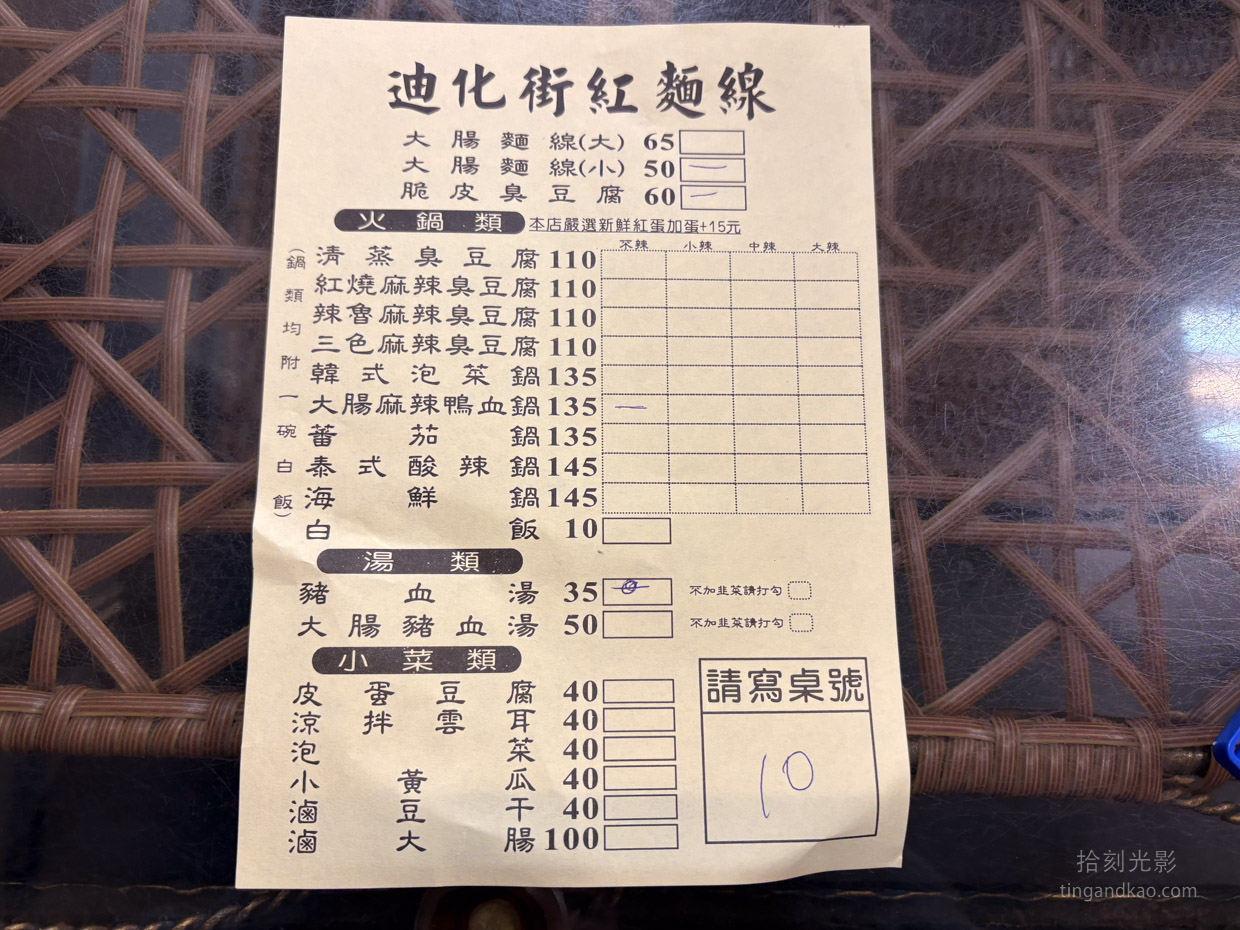 迪化街紅麵線
大腸麵線(大) 65
大腸麵線(小) 50 一
脆皮臭豆腐 60 一
火鍋類 本店嚴選新鮮紅蛋加蛋+15元
不辣 小辣 中辣 大辣
(鍋類均附一碗白飯)
清蒸臭豆腐 110
紅燒麻辣臭豆腐 110
辣魯麻辣臭豆腐 110
三色麻辣臭豆腐 110
韓式泡菜鍋 135
大腸麻辣鴨血鍋 135 一
蕃茄鍋 135
泰式酸辣鍋 145
海鮮鍋 145
白飯 10
湯類
豬血湯 35 不加韭菜請打勾
大腸豬血湯 50 不加韭菜請打勾
小菜類
皮蛋豆腐 40
涼拌雲耳 40
泡菜 40
小黃瓜 40
滷豆干 40
滷大腸 100
請寫桌號
10
拾刻光影
tingandkao.com